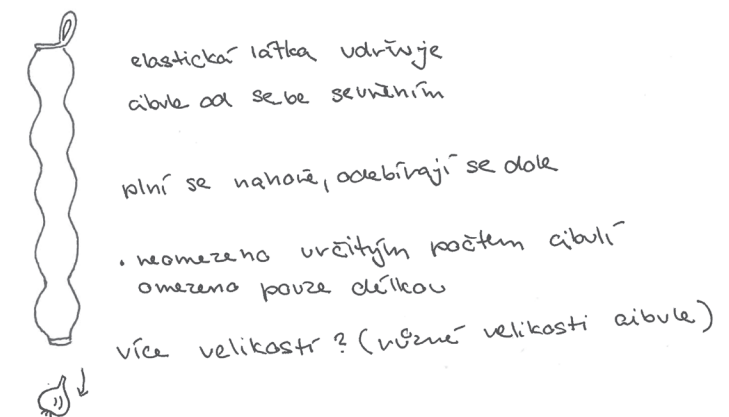 elastická látka udržuje
cibule od sebe sevřením
plní se nahoře, odebírají se dole
• neomezeno určitým počtem cibulí
omezeno pouze délkou
více velikostí? (různé velikosti cibule)